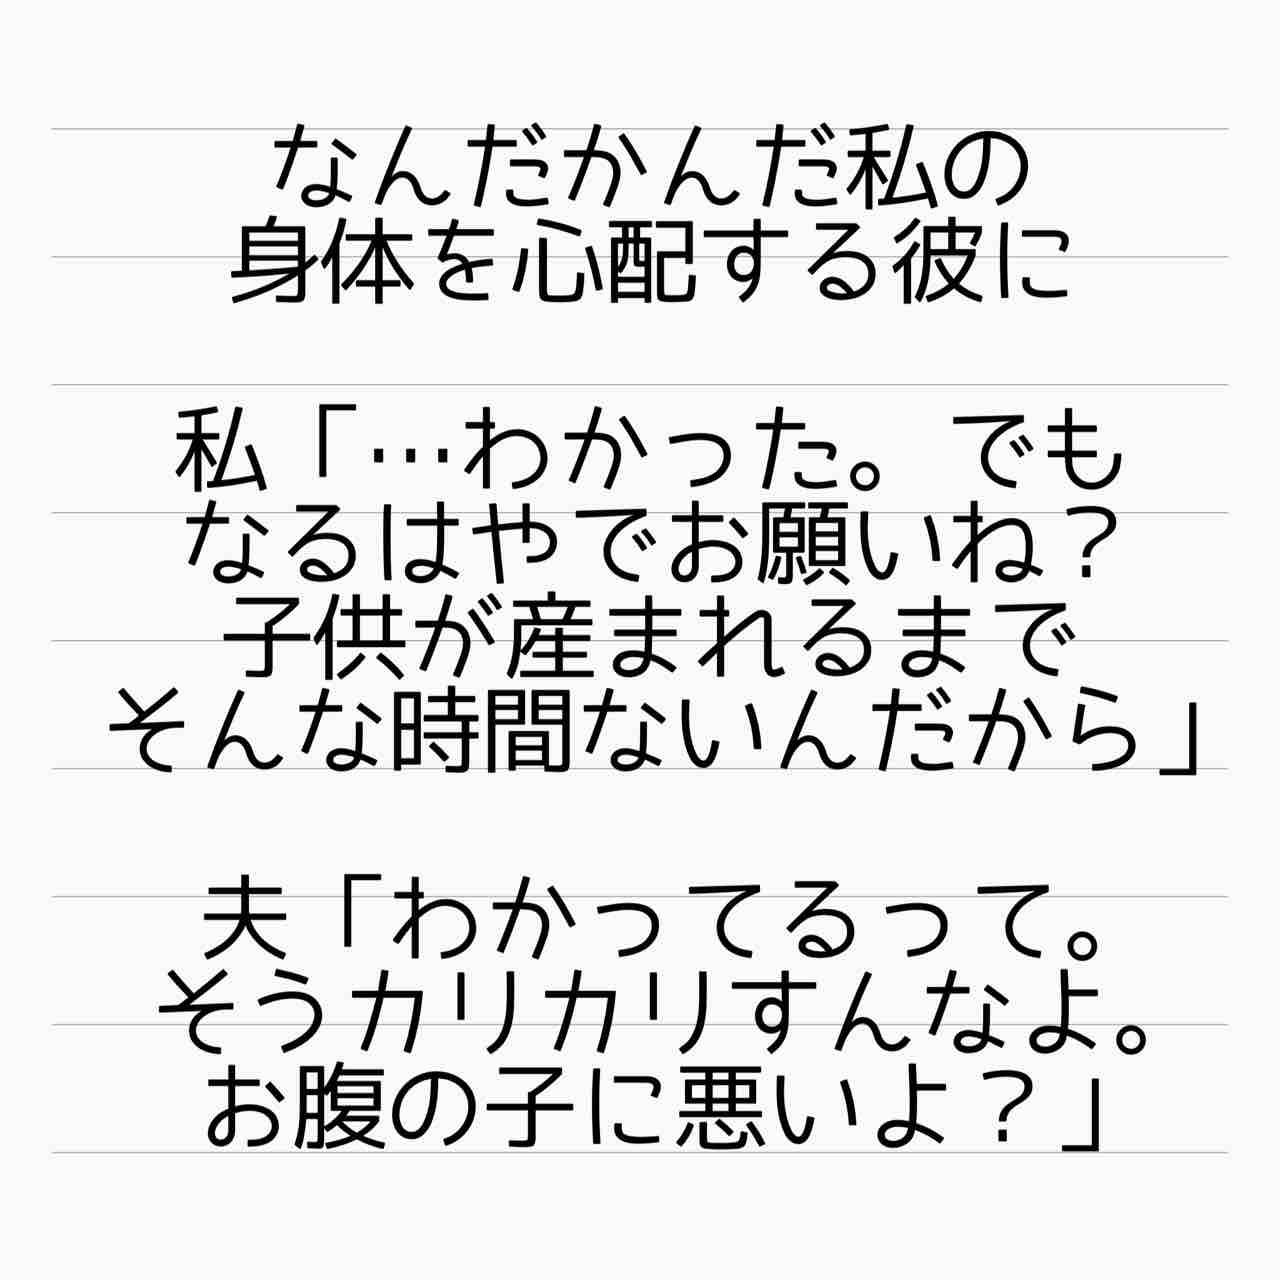 なんだかんだ私の
身体を心配する彼に
私「…わかった。でも
なるはやでお願いね？
子供が産まれるまで
そんな時間ないんだから」
夫「わかってるって。
そうカリカリすんなよ。
お腹の子に悪いよ？」